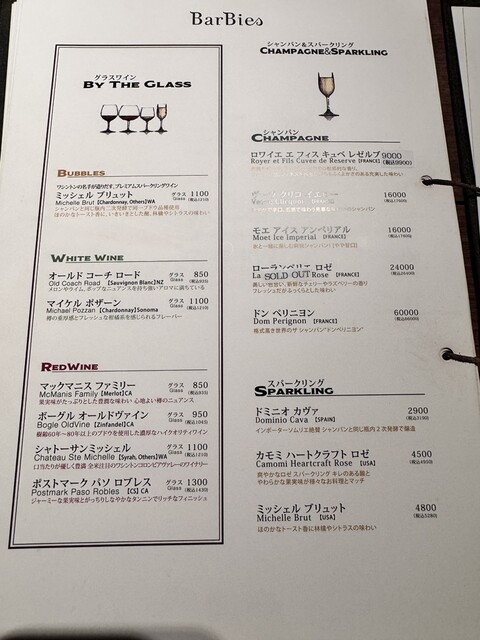 BarBies
グラスワイン
BY THE GLASS
BUBBLES
ワシントンの名手が造りだす、プレミアムスパークリングワイン
ミッシェル ブリュット グラス 1100
Michelle Brut 【Chardonnay, Others】WA Glass (税込1210)
シャンパンと同じ瓶内二次発酵で同一ブドウ品種使用
ほのかなトースト香に、いきいきとした酸、林檎やシトラスの味わい
WHITE WINE
オールド コーチ ロード グラス 850
Old Coach Road 【Sauvignon Blanc】NZ Glass (税込935)
メロンやライム、ポップなニュアンスを持ち強いアロマに満ちている
マイケル ポザーン グラス 1100
Michael Pozzan 【Chardonnay】Sonoma Glass (税込1210)
樽の重厚感とフレッシュな柑橘系を感じられるフレーバー
RED WINE
マックマニス ファミリー グラス 850
McManis Family 【Merlot】CA Glass (税込935)
果実味がたっぷりとした豊潤な味わい 心地よい樽のニュアンス
ボーグル オールドヴァイン グラス 950
Bogle OldVine 【Zinfandel】CA Glass (税込1045)
樹齢60年～80年以上のブドウを使用した濃厚なハイクオリティワイン
シャトーサンミッシェル グラス 1100
Chateau Ste Michelle 【Syrah, Others】WA Glass (税込1210)
口当たりが優しく豊満 全米注目のワシントンコロンビアヴァレーのワイナリー
ポストマーク パソ ロブレス グラス 1300
Postmark Paso Robles 【CS】CA Glass (税込1430)
ジャーミーな果実味とがっちりしなやかなタンニンでリッチなフィニッシュ
シャンパン&スパークリング
CHAMPAGNE&SPARKLING
シャンパン
CHAMPAGNE
ロワイエ エ フィス キュベ レゼルブ 9000
Royer et Fils Cuvee de Reserve 【FRANCE】 (税込9900)
16000
(税込17600)
モエ アイス アンペリアル 16000
Moet Ice Imperial 【FRANCE】 (税込17600)
氷と一緒に楽しむ特別シャンパン！【やや甘口】
ローランペリエ ロゼ 24000
La SOLD OUT Rose 【FRANCE】 (税込26400)
美しい色合い、新鮮なチェリーやラズベリーの香り
フレッシュだがふっくらとした味わい
ドン ペリニヨン 60000
Dom Perignon 【FRANCE】 (税込66000)
格式高き世界のザ シャンパン“ドンペリニヨン”
スパークリング
SPARKLING
ドミニオ カヴァ 2900
Dominio Cava 【SPAIN】 (税込3190)
インポーターソムリエ絶賛 シャンパンと同じ瓶内2次発酵で醸造
カモミ ハートクラフト ロゼ 4500
Camomi Heartcraft Rose 【USA】 (税込4950)
爽やかなロゼ スパークリング キレのある酸と
やわらかな果実味が様々なお料理とマッチ
ミッシェル ブリュット 4800
Michelle Brut 【USA】 (税込5280)
ほのかなトースト香に林檎やシトラスの味わい